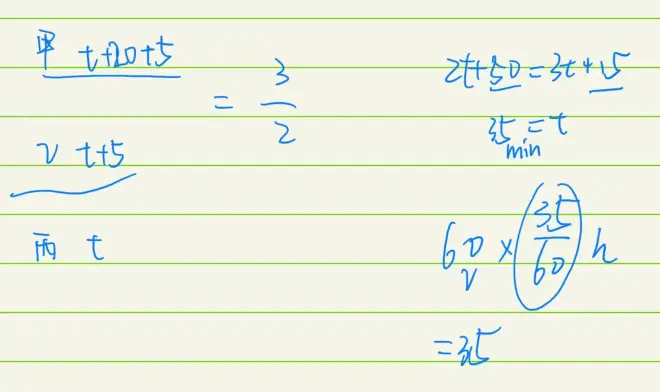 甲 t+20+5
= 3/2
乙 t+5
丙 t
2t+50=3t+15
35=t
min
60 × 35/60 h
v
=35